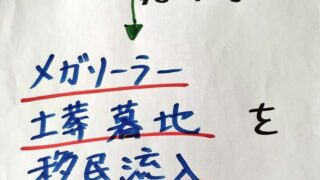 メガソーラー
土葬墓地を
移民流入